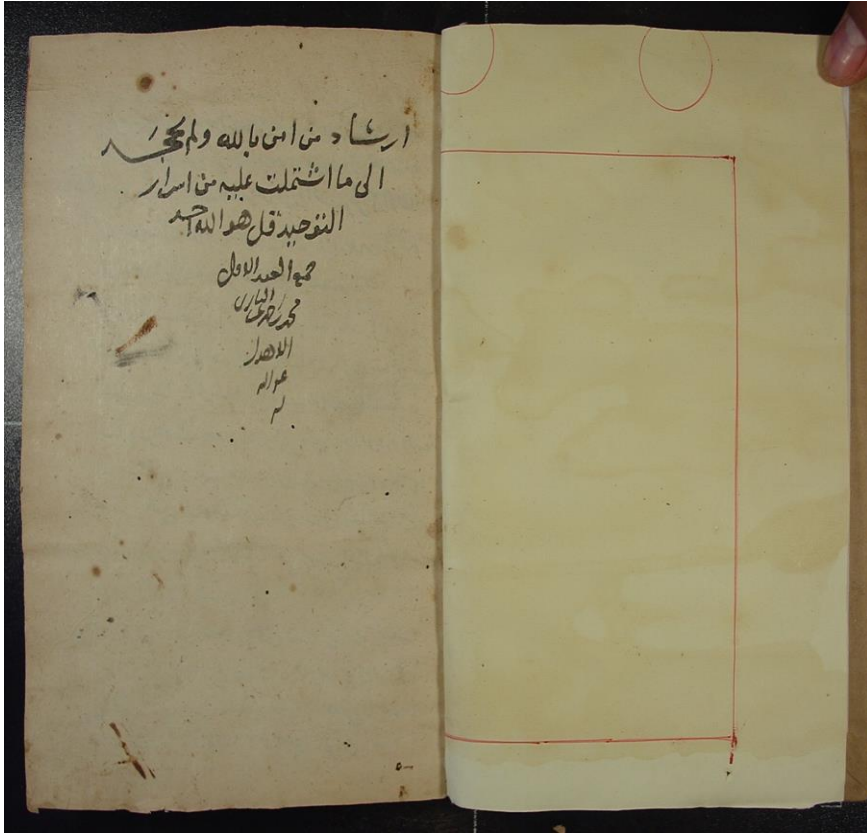 ارشاد من امن بالله ولم يجحد
الى ما اشتملت عليه من اسرار
التوحيد قل هو الله احد
جمع العبد الاول
محمد بن احمد عبد الباري
الاهدل
عفا الله